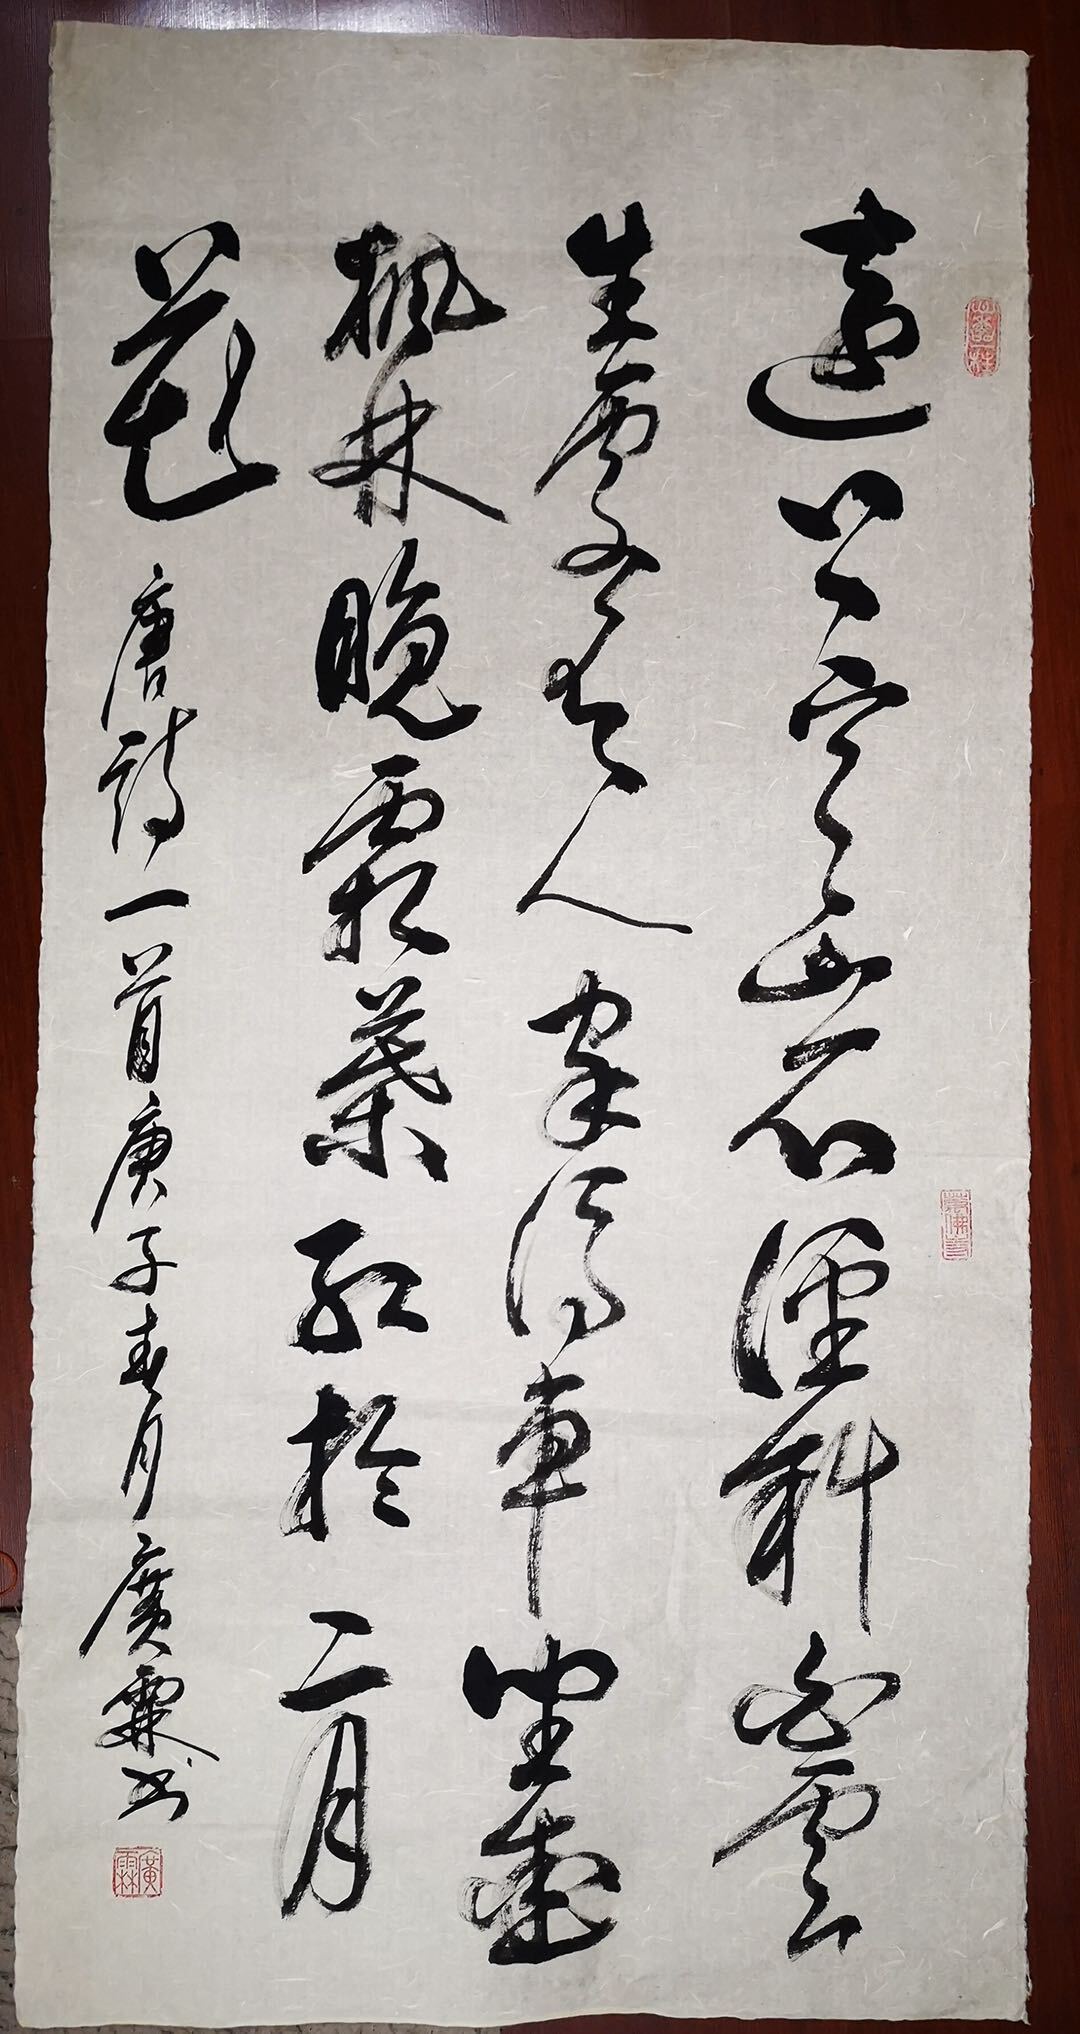 遠上寒山石徑斜白雲
生處有人家停車坐愛
楓林晚霜葉紅於二月
花 唐詩一首庚子春月廣霖书
廣霖